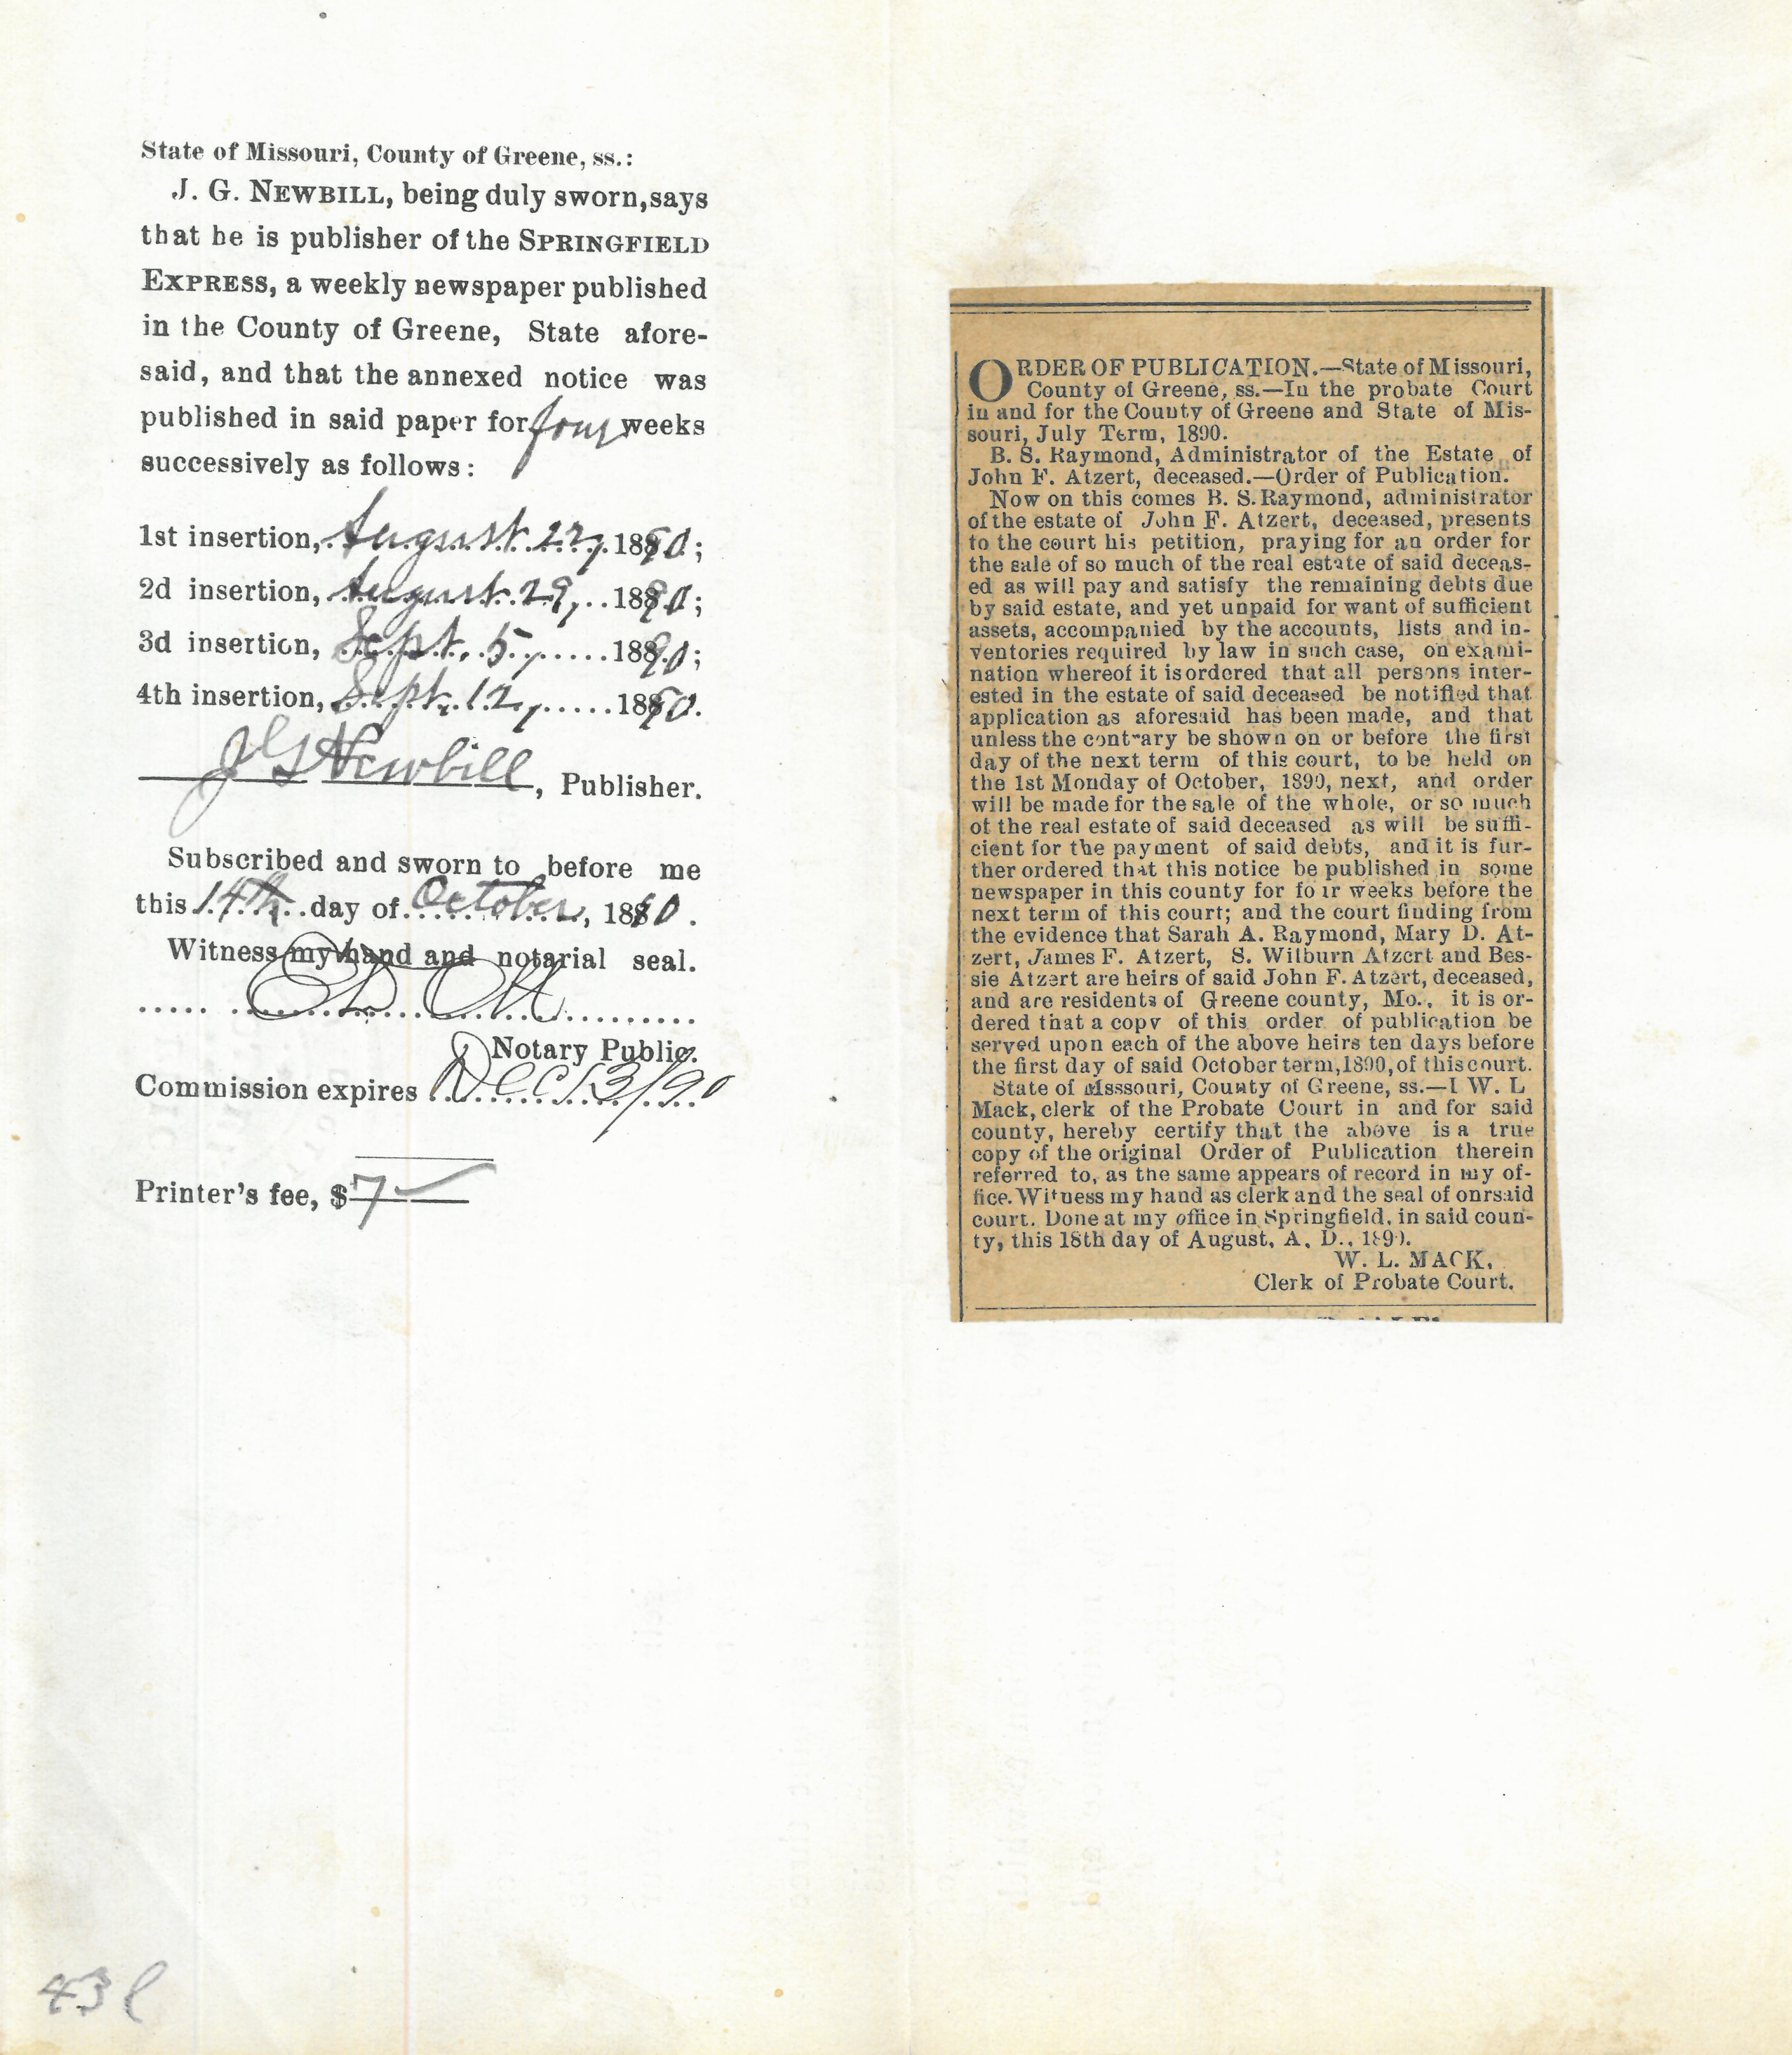 State of Missouri, County of Greene, ss.:
J. G. NEWBILL, being duly sworn, says
that he is publisher of the SPRINGFIELD
EXPRESS, a weekly newspaper published
in the County of Greene, State afore-
said, and that the annexed notice was
published in said paper for four weeks
successively as follows:
1st insertion, August 22, 1890;
2d insertion, August 29, 1890;
3d insertion, Sept. 5, 1890;
4th insertion, Sept. 12, 1890.
J G Newbill, Publisher.
Subscribed and sworn to before me
this 14th day of October, 1890.
Witness my hand and notarial seal.
Notary Public.
Commission expires Dec 13/90
Printer's fee, $7
43
ORDER OF PUBLICATION.—State of Missouri,
County of Greene, ss.—In the probate Court
in and for the County of Greene and State of Mis-
souri, July Term, 1890.
B. S. Raymond, Administrator of the Estate of
John F. Atzert, deceased.—Order of Publication.
Now on this comes B. S. Raymond, administrator
of the estate of John F. Atzert, deceased, presents
to the court his petition, praying for an order for
the sale of so much of the real estate of said deceas-
ed as will pay and satisfy the remaining debts due
by said estate, and yet unpaid for want of sufficient
assets, accompanied by the accounts, lists and in-
ventories required by law in such case, on exami-
nation whereof it is ordered that all persons inter-
ested in the estate of said deceased be notified that
application as aforesaid has been made, and that
unless the contrary be shown on or before the first
day of the next term of this court, to be held on
the 1st Monday of October, 1890, next, and order
will be made for the sale of the whole, or so much
of the real estate of said deceased as will be suffi-
cient for the payment of said debts, and it is fur-
ther ordered that this notice be published in some
newspaper in this county for four weeks before the
next term of this court; and the court finding from
the evidence that Sarah A. Raymond, Mary D. At-
zert, James F. Atzert, S. Wilburn Atzert and Bes-
sie Atzert are heirs of said John F. Atzert, deceased,
and are residents of Greene county, Mo., it is or-
dered that a copy of this order of publication be
served upon each of the above heirs ten days before
the first day of said October term, 1890, of this court.
State of Msssouri, County of Greene, ss.—I W. L
Mack, clerk of the Probate Court in and for said
county, hereby certify that the above is a true
copy of the original Order of Publication therein
referred to, as the same appears of record in my of-
fice. Witness my hand as clerk and the seal of onrsaid
court. Done at my office in Springfield, in said coun-
ty, this 18th day of August, A. D., 1890.
W. L. MACK,
Clerk of Probate Court.